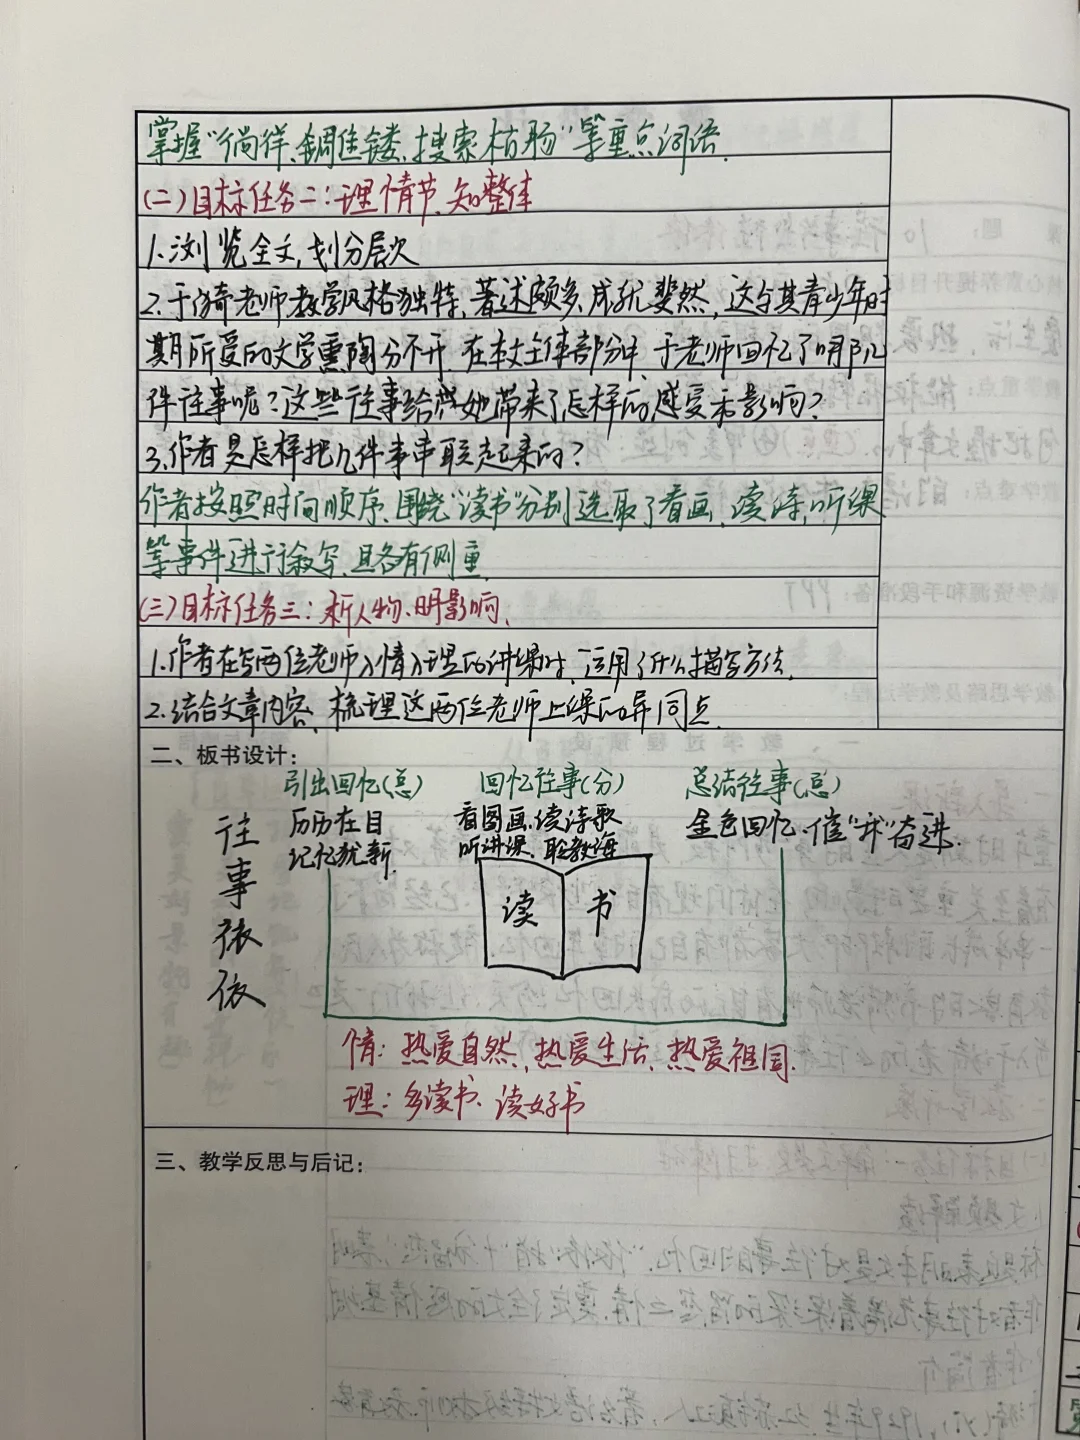 掌握“徜徉、镌镂、搜索枯肠”等重点词语.
(二)目标任务二：理情节、知整体
1.浏览全文,划分层次
2.于漪老师教学风格独特,著述颇多,成就斐然,这与其青少年时
期所受的文学熏陶分不开,在本文主体部分中,于老师回忆了哪几
件往事呢?这些往事给她带来了怎样的感受和影响?
3.作者是怎样把几件事串联起来的?
作者按照时间顺序,围绕“读书”分别选取了看画、读诗,听课
等事件进行叙写,且各有侧重
(三)目标任务三：析人物、明影响、
1.作者在写两位老师入情入理的讲课时,运用了什么描写方法.
2.结合文章内容,梳理这两位老师上课的异同点.
二、板书设计：
引出回忆(总) 回忆往事(分) 总结往事(总)
历历在目 看图画、读诗歌 金色回忆、催“我”奋进.
记忆犹新 听讲课、聆教诲
往事依依
读 书
情：热爱自然,热爱生活、热爱祖国.
理：多读书、读好书
三、教学反思与后记：